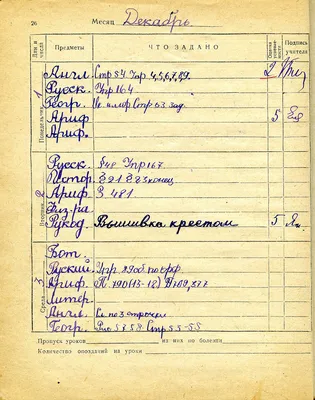 26 Месяц Декабрь
Дни и числа Предметы ЧТО ЗАДАНО Оценка успеваемости Подпись учителя
Понедельник 1
Англ. Стр 54 Упр 4,5,6,7,8,9. 2
Русск. Упр 164
Геогр. Стр 53 зад.
Ариф 5
Ариф.
Вторник 2
Русск. §48 Упр 167
Истор. §21 §23 конец
Ариф З 481
Физ-ра
Рукод. Вышивка крестом 5
Среда 3
Бот.
Руский. Упр
Ариф. №790 (13-18) №709,377
Литер.
Англ.
Геогр. Рис 57 58. Стр 55-55
Пропуск уроков из них по болезни
Количество опозданий на уроки